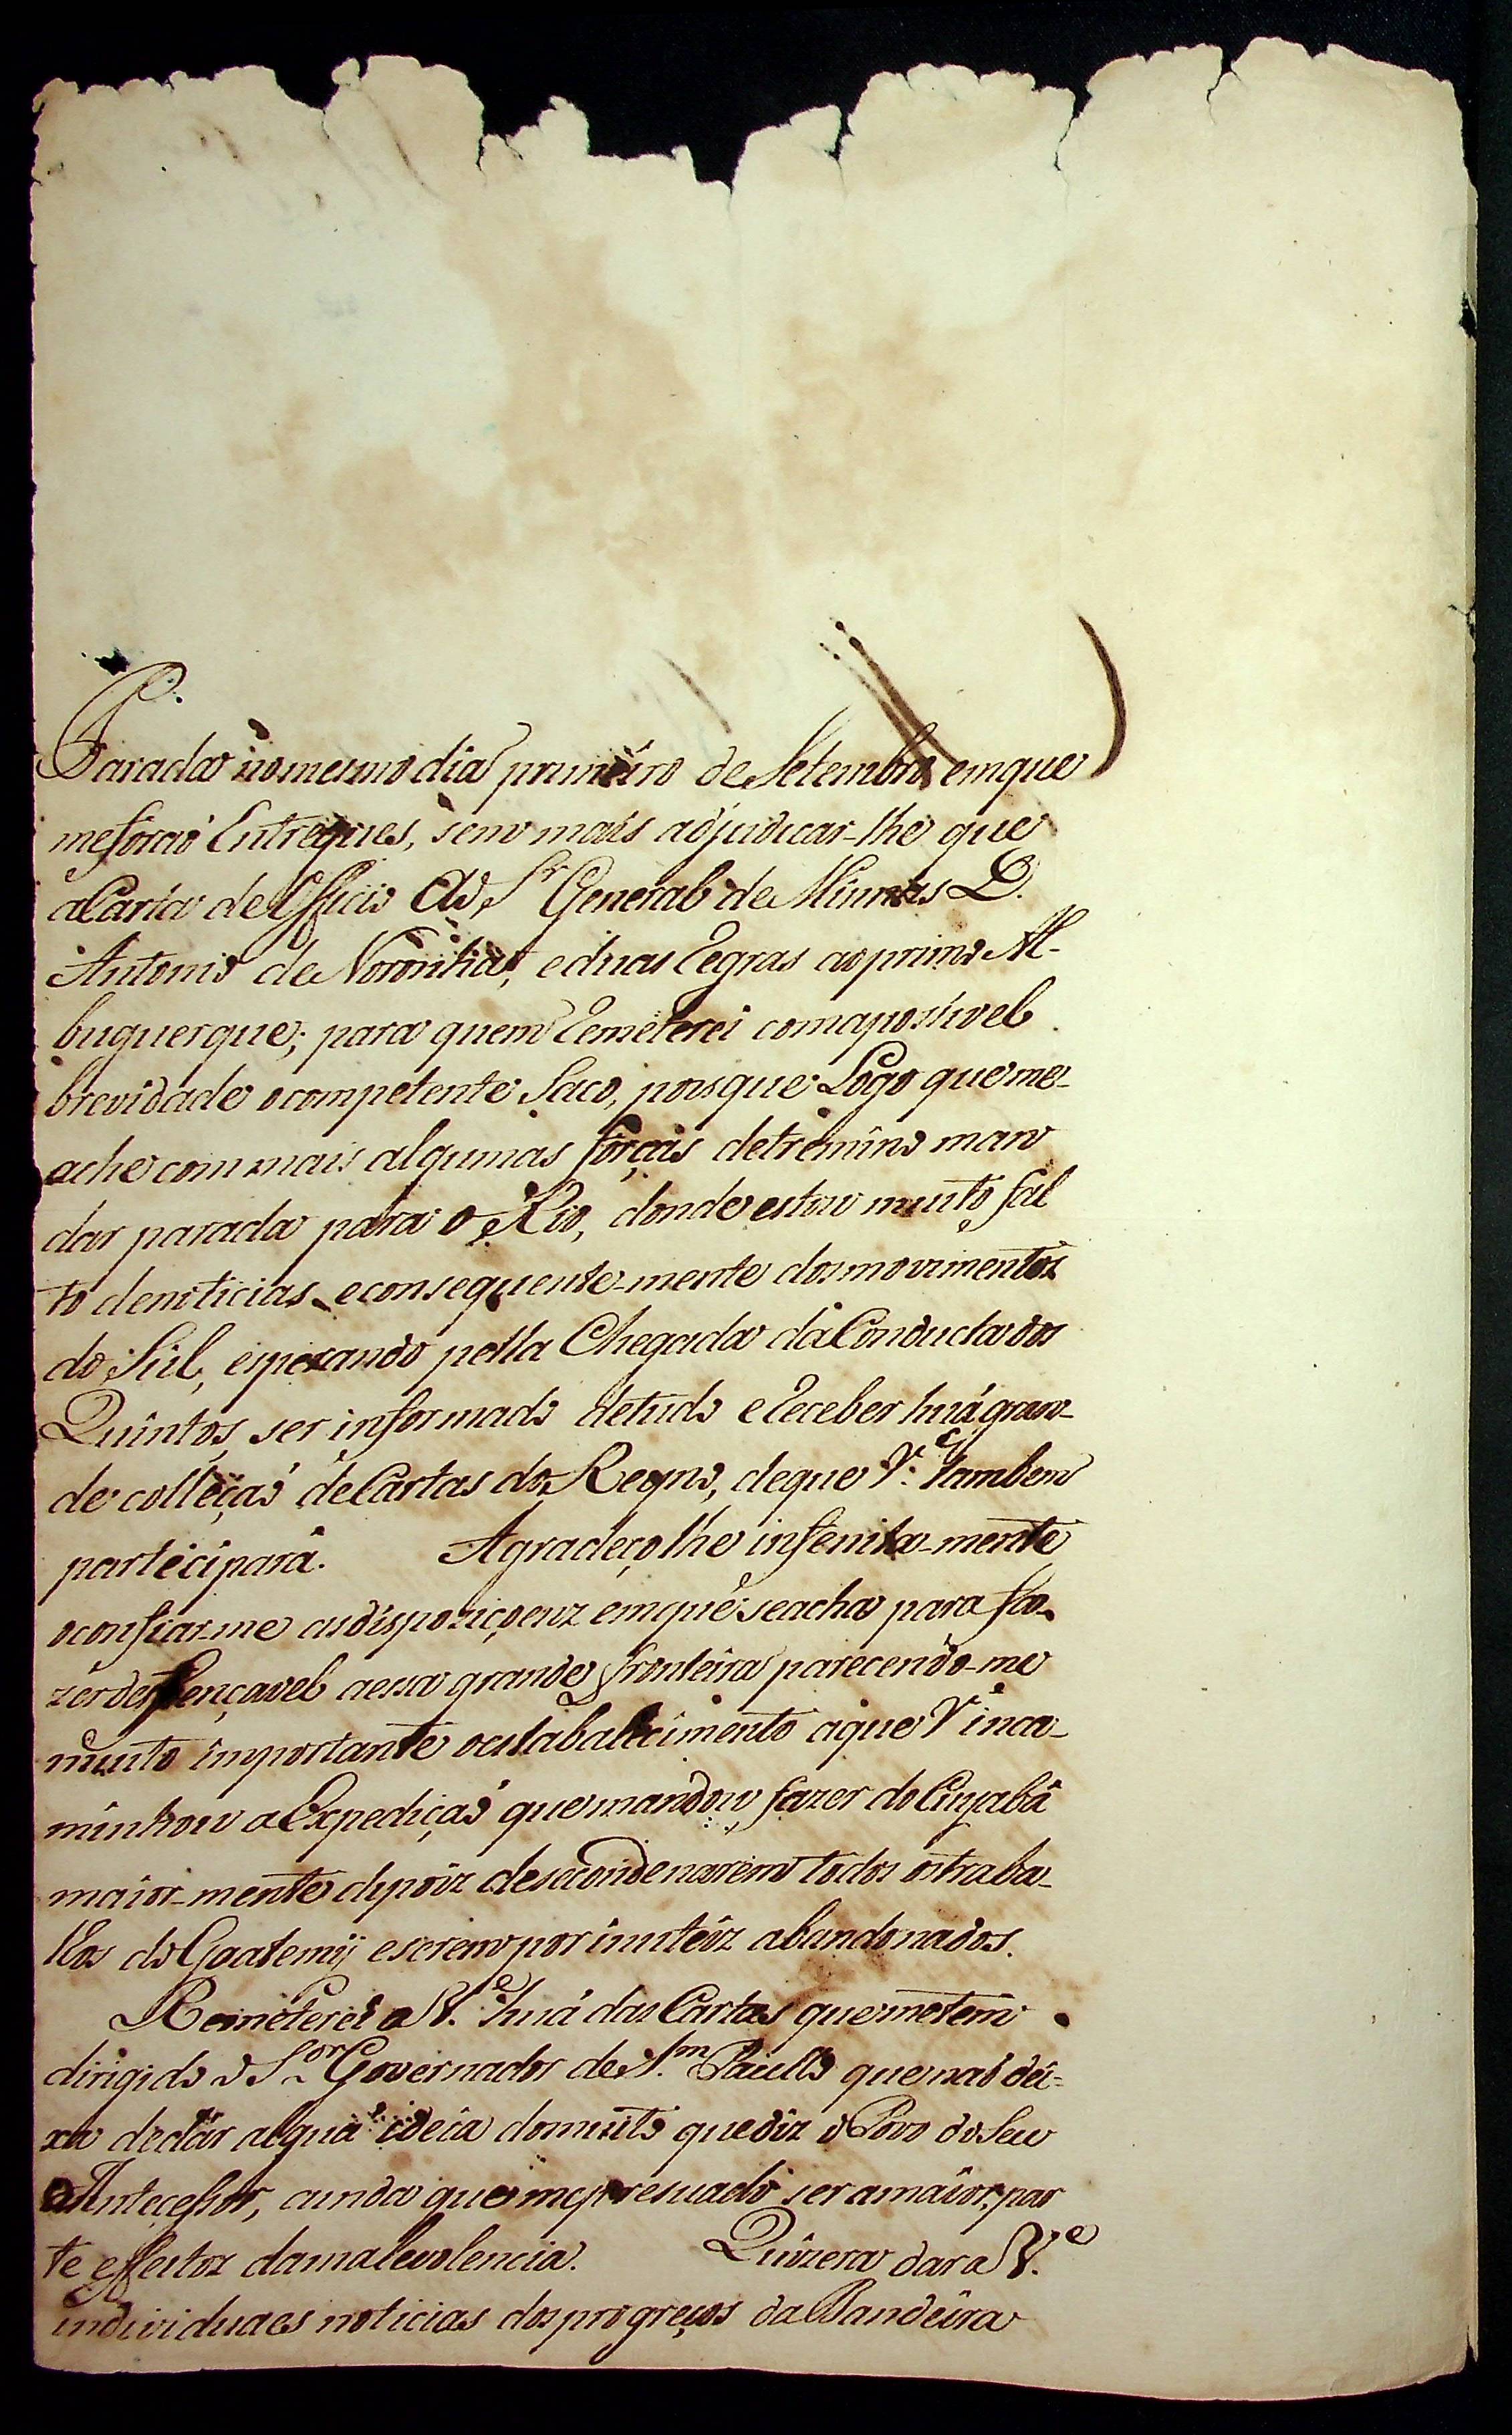 P.
Parada no mesmo dia primeiro de Setembro em que
me foraõ Entregues, sem mais adjudicar-lhe que
a Carta de Officio Ao Sr General de Minnas D.
Antonio de Noronha, e duas Regras ao primo Al-
buquerque; para quem Remeterei com a posivel
brevidade o competente Saco, pois que Logo que me
ache com mais algumas forças detremino man
dar parada para o Rio, donde estou muito fal
to de noticias e consequente-mente dos movimentos
do Sul, esperando pella Chegada da Conducta dos
Quintos ser informado de tudo e Receber huã gran-
de colleçaõ de Cartas do Reyno, de que V.e tambem
participará. Agradeço lhe infenita-mente
o confiar-me as dispoziçoenz em que se acha para fa-
zer deffençavel a essa grande fronteira parecendo-me
muito importante o estabalecimento a que V inca-
minhou a Expediçaõ que mandou fazer do Cuyabá
maior-mente depoiz de se condenarem todos os traba-
lhos do Goatemÿ e serem por inuteiz abandonados.
Remeterei a V.e huã das Cartas que me tem
dirigido o Sor Governador de Sm Paullo que naõ dei-
xa de dár algua ideia do muito que diz o Povo do Seu
Antecessor, ainda que me presuado ser a maior par
te effeitoz da malevolencia. Quizera dar a V.e
individuaes noticias dos progreços da Bandeira